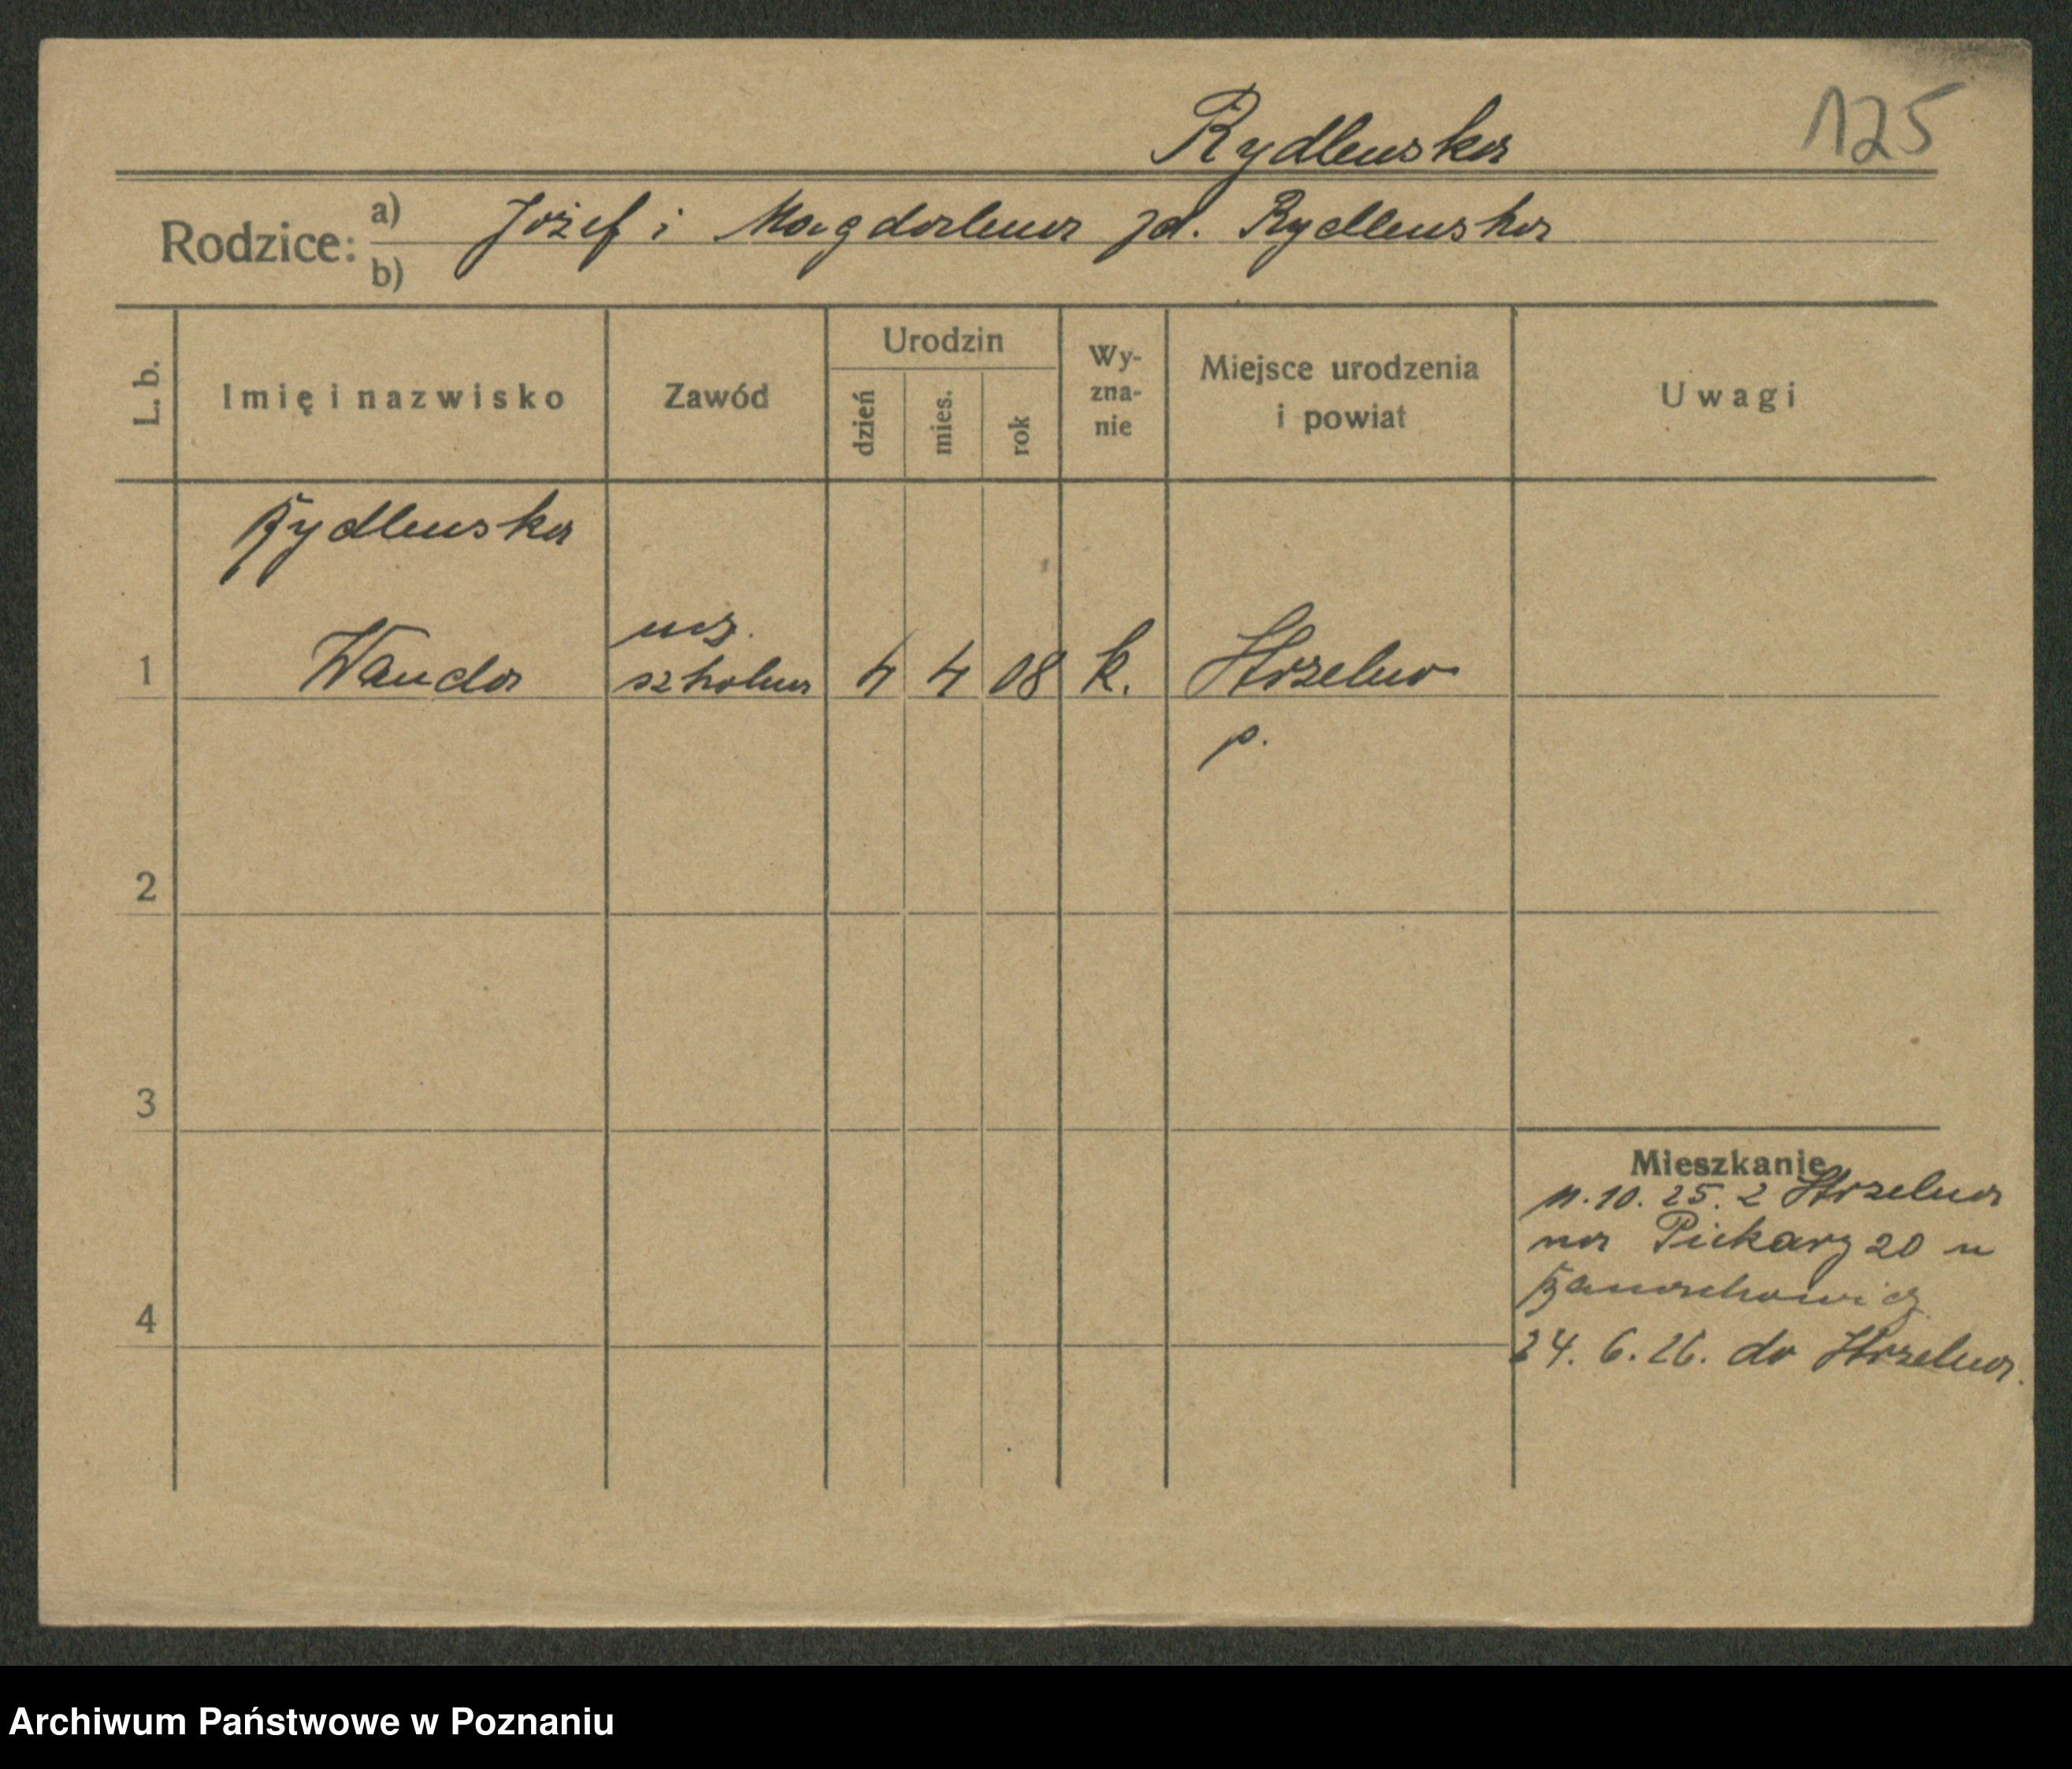 Rydlewska
125
Rodzice:
a) Józef i Magdalena zd. Rydlewska
b)
L. b.
Imię i nazwisko
Zawód
Urodzin
dzień
mies.
rok
Wy-
zna-
nie
Miejsce urodzenia
i powiat
Uwagi
Rydlewska
ucz.
1 Wanda szkolna 4 4 08 k. Strzelno
p.
2
3
Mieszkanie
10. 25. z Strzelna
na Piekary 20 u
4
24. 6. 26. do Strzelna.
Archiwum Państwowe w Poznaniu